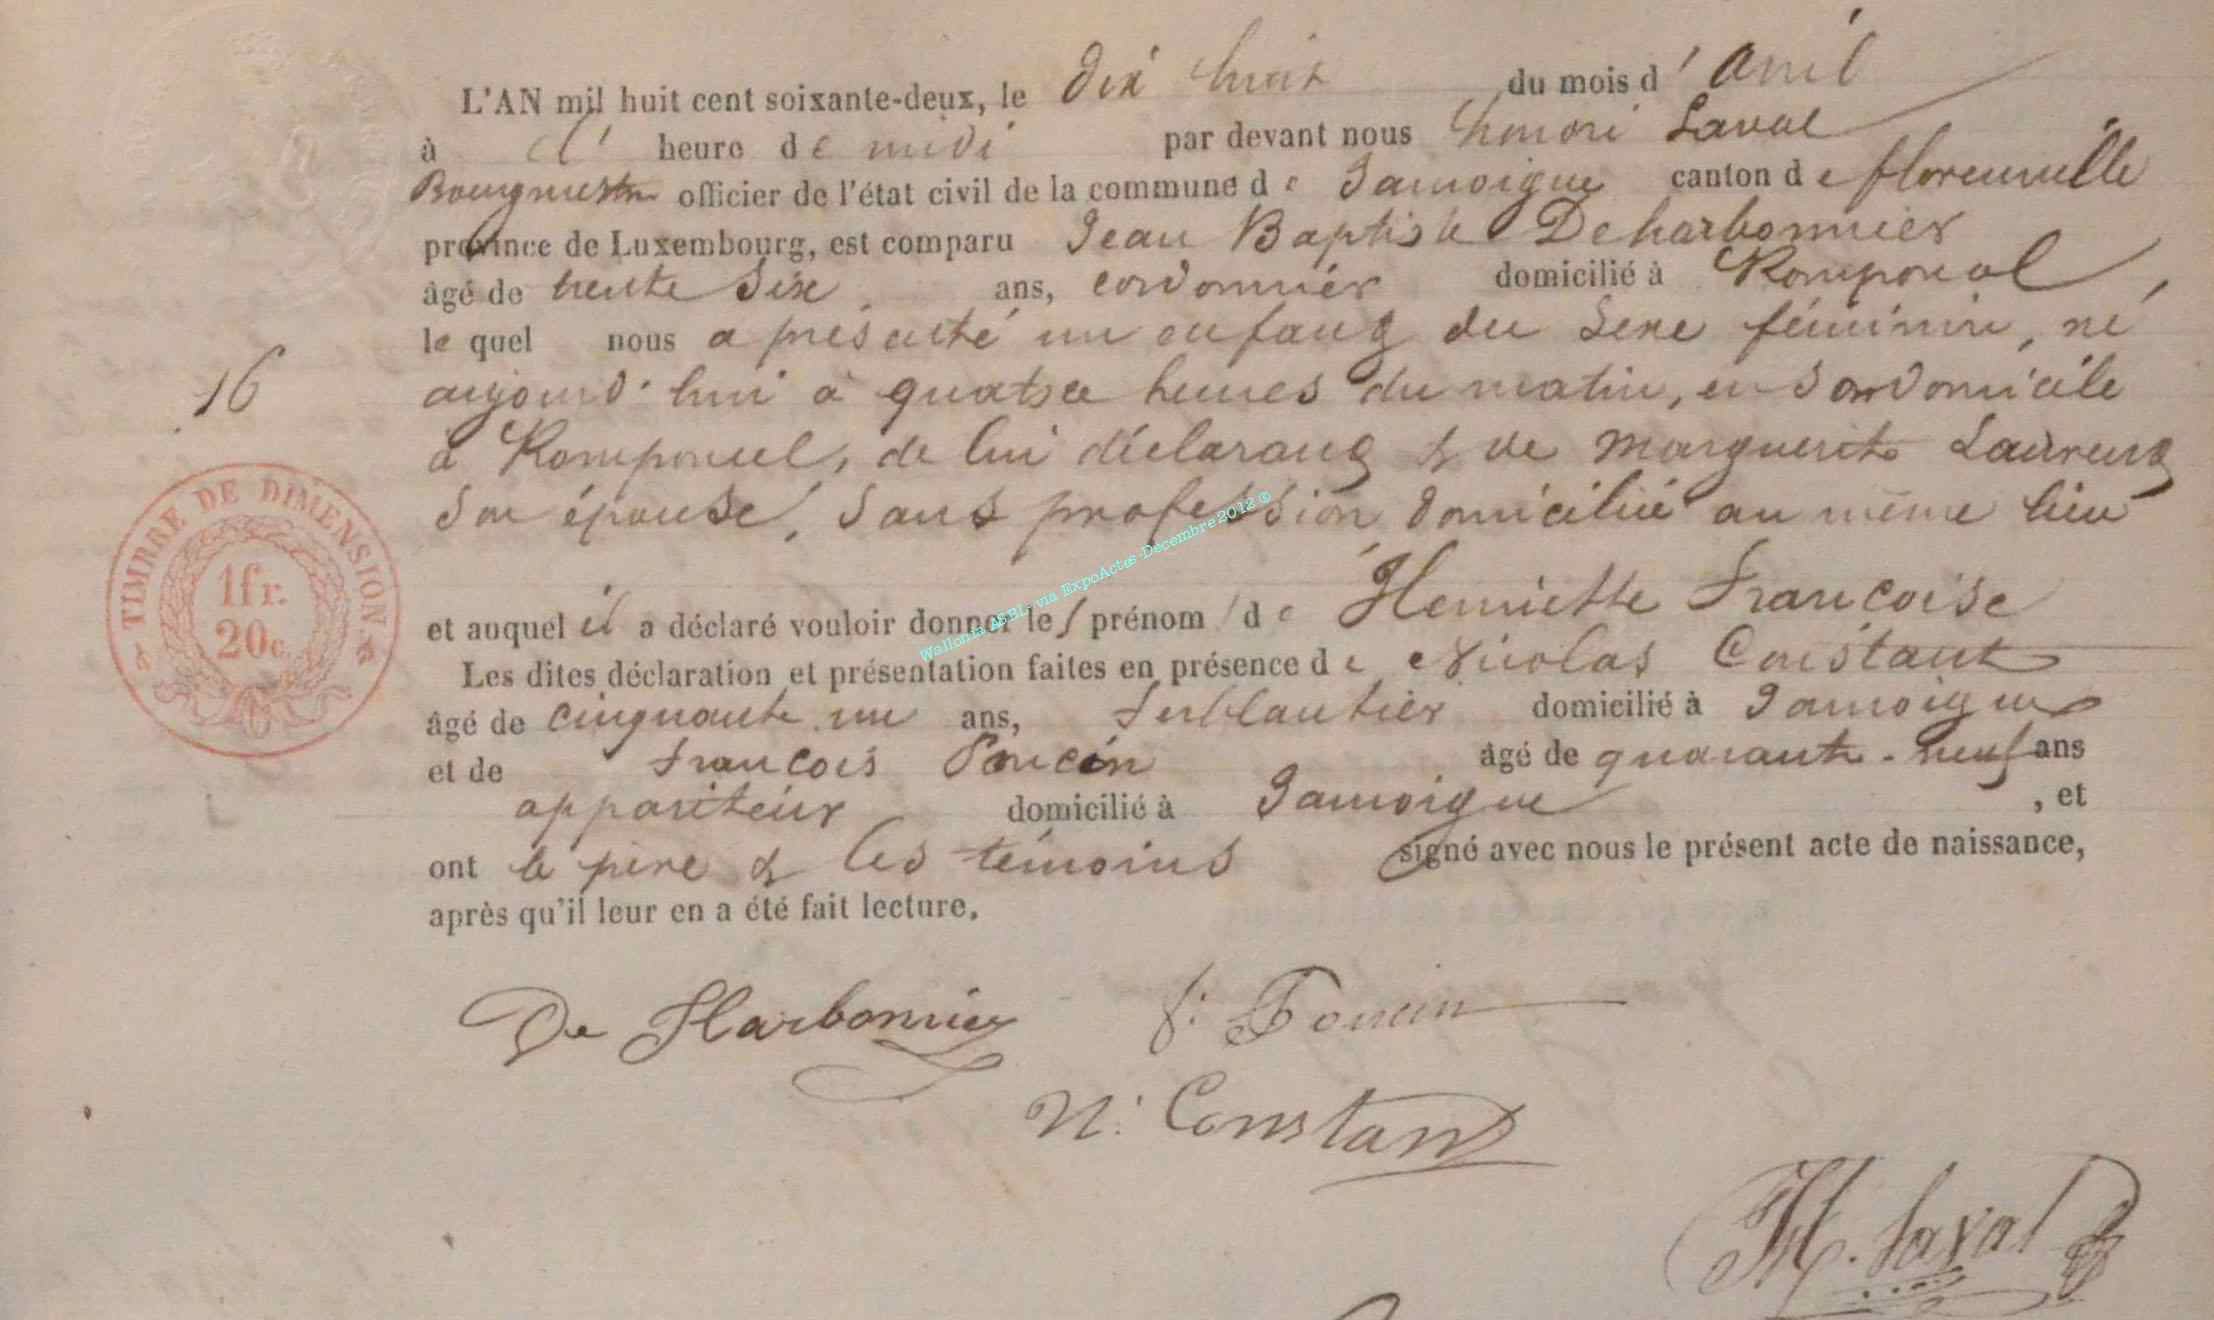 L'AN mil huit cent soixante-deux, le dix huit du mois d'avril
à l' heure de midi par devant nous honoré Laval
Bourgmestre officier de l'état civil de la commune de Jamoigne canton de florenville
province de Luxembourg, est comparu Jean Baptiste Deharbonnier
âgé de trente six ans, cordonnier domicilié à Romponcel,
le quel nous a présenté un enfant du sexe féminin, né
16
aujourd'hui à quatre heures du matin, en son domicile
à Romponcel, de lui déclarant & de Marguerite Laurent
son épouse, sans profession, domiciliée au même lieu
TIMBRE DE DIMENSION
1fr.
20c.
Wallonia ASBL via ExpoActes-Décembre2012©
et auquel il a déclaré vouloir donner les prénoms de Henriette Françoise
Les dites déclaration et présentation faites en présence de Nicolas Constant
âgé de cinquante un ans, ferblantier domicilié à Jamoigne
et de François Poncin âgé de quarante-neuf ans
appariteur domicilié à Jamoigne, et
ont le père & les témoins signé avec nous le présent acte de naissance,
après qu'il leur en a été fait lecture.
De Harbonnier f: Poncin
N: Constant
H. Laval